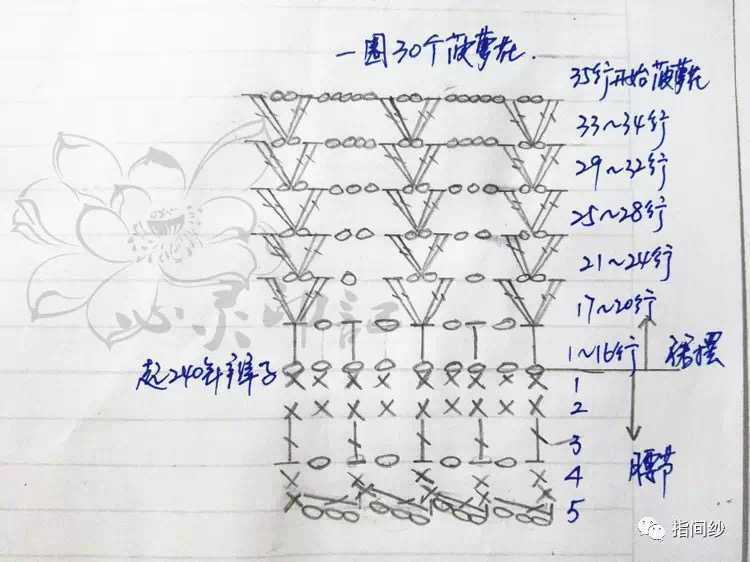 一圈30个菠萝花.
35行开始菠萝花
33~34行
29~32行
25~28行
21~24行
17~20行
1~16行
裙摆
起240针辫子
1
2
3
腰节
4
5
指间纱